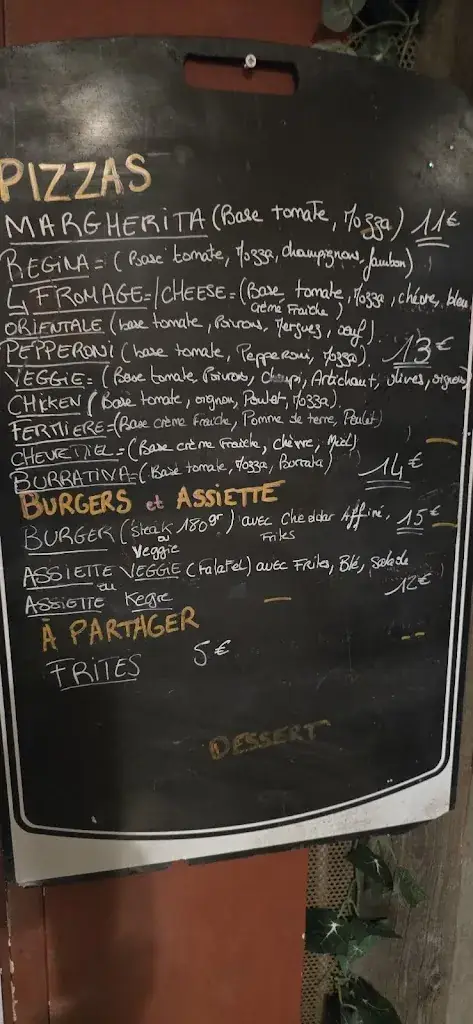 PIZZAS
MARGHERITA (Base tomate, Mozza) 11€
REGINA = (Base tomate, Mozza, champignons, jambon)
4 FROMAGE = / CHEESE = (Base tomate, Mozza, chèvre, bleu
Crème Fraîche)
ORIENTALE (base tomate, Poivrons, Merguez, oeuf)
PEPPERONI (base tomate, Pepperoni, Mozza) 13€
VEGGIE = (Base tomate, Poivrons, Champi, Artichaut, olives, oignons
CHICKEN (Base tomate, oignon, Poulet, Mozza)
FERMIERE = (Base crème Fraîche, Pomme de terre, Poulet)
CHEVREMIEL = (Base crème Fraîche, Chèvre, Miel)
BURRATINA = (Base tomate, Mozza, Burrata) 14€
BURGERS et ASSIETTE
BURGER (steak 180gr) avec Cheddar Affiné, 15€
ou Frites
Veggie
ASSIETTE VEGGIE (Falafel) avec Frites, Blé, Salade
ou 12€
ASSIETTE
À PARTAGER
FRITES 5€
DESSERT